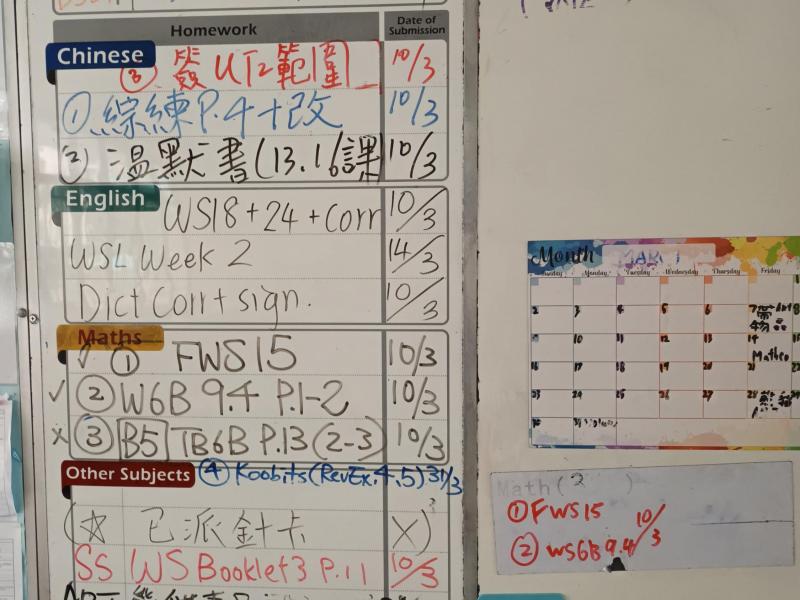 Homework
Date of Submission
Chinese
③ 簽 UT2 範圍 10/3
① 綜練 P.4+改 10/3
② 溫默書(13.16課 10/3
English
WS18+24+Corr 10/3
WSL Week 2 14/3
Dict Corr+sign. 10/3
Maths
✓ ① FWS15 10/3
✓ ② W6B 9.4 P.1-2 10/3
x ③ B5 TB6B P.13(2-3) 10/3
Other Subjects ④ Koobits(RevEx.4.5) 31/3
(☆ 已派針卡 X)
SS WS Booklet3 P.11 10/3
Month MARCH
Sunday Monday Tuesday Wednesday Thursday Friday
2 3 4 5 6 7
10 11 12 13 14
Matheo
16 17 18 19 20 21
23 24 25 26 27 28
30 31
Math(2 )
① FWS15
② WS6B 9.4 10/3